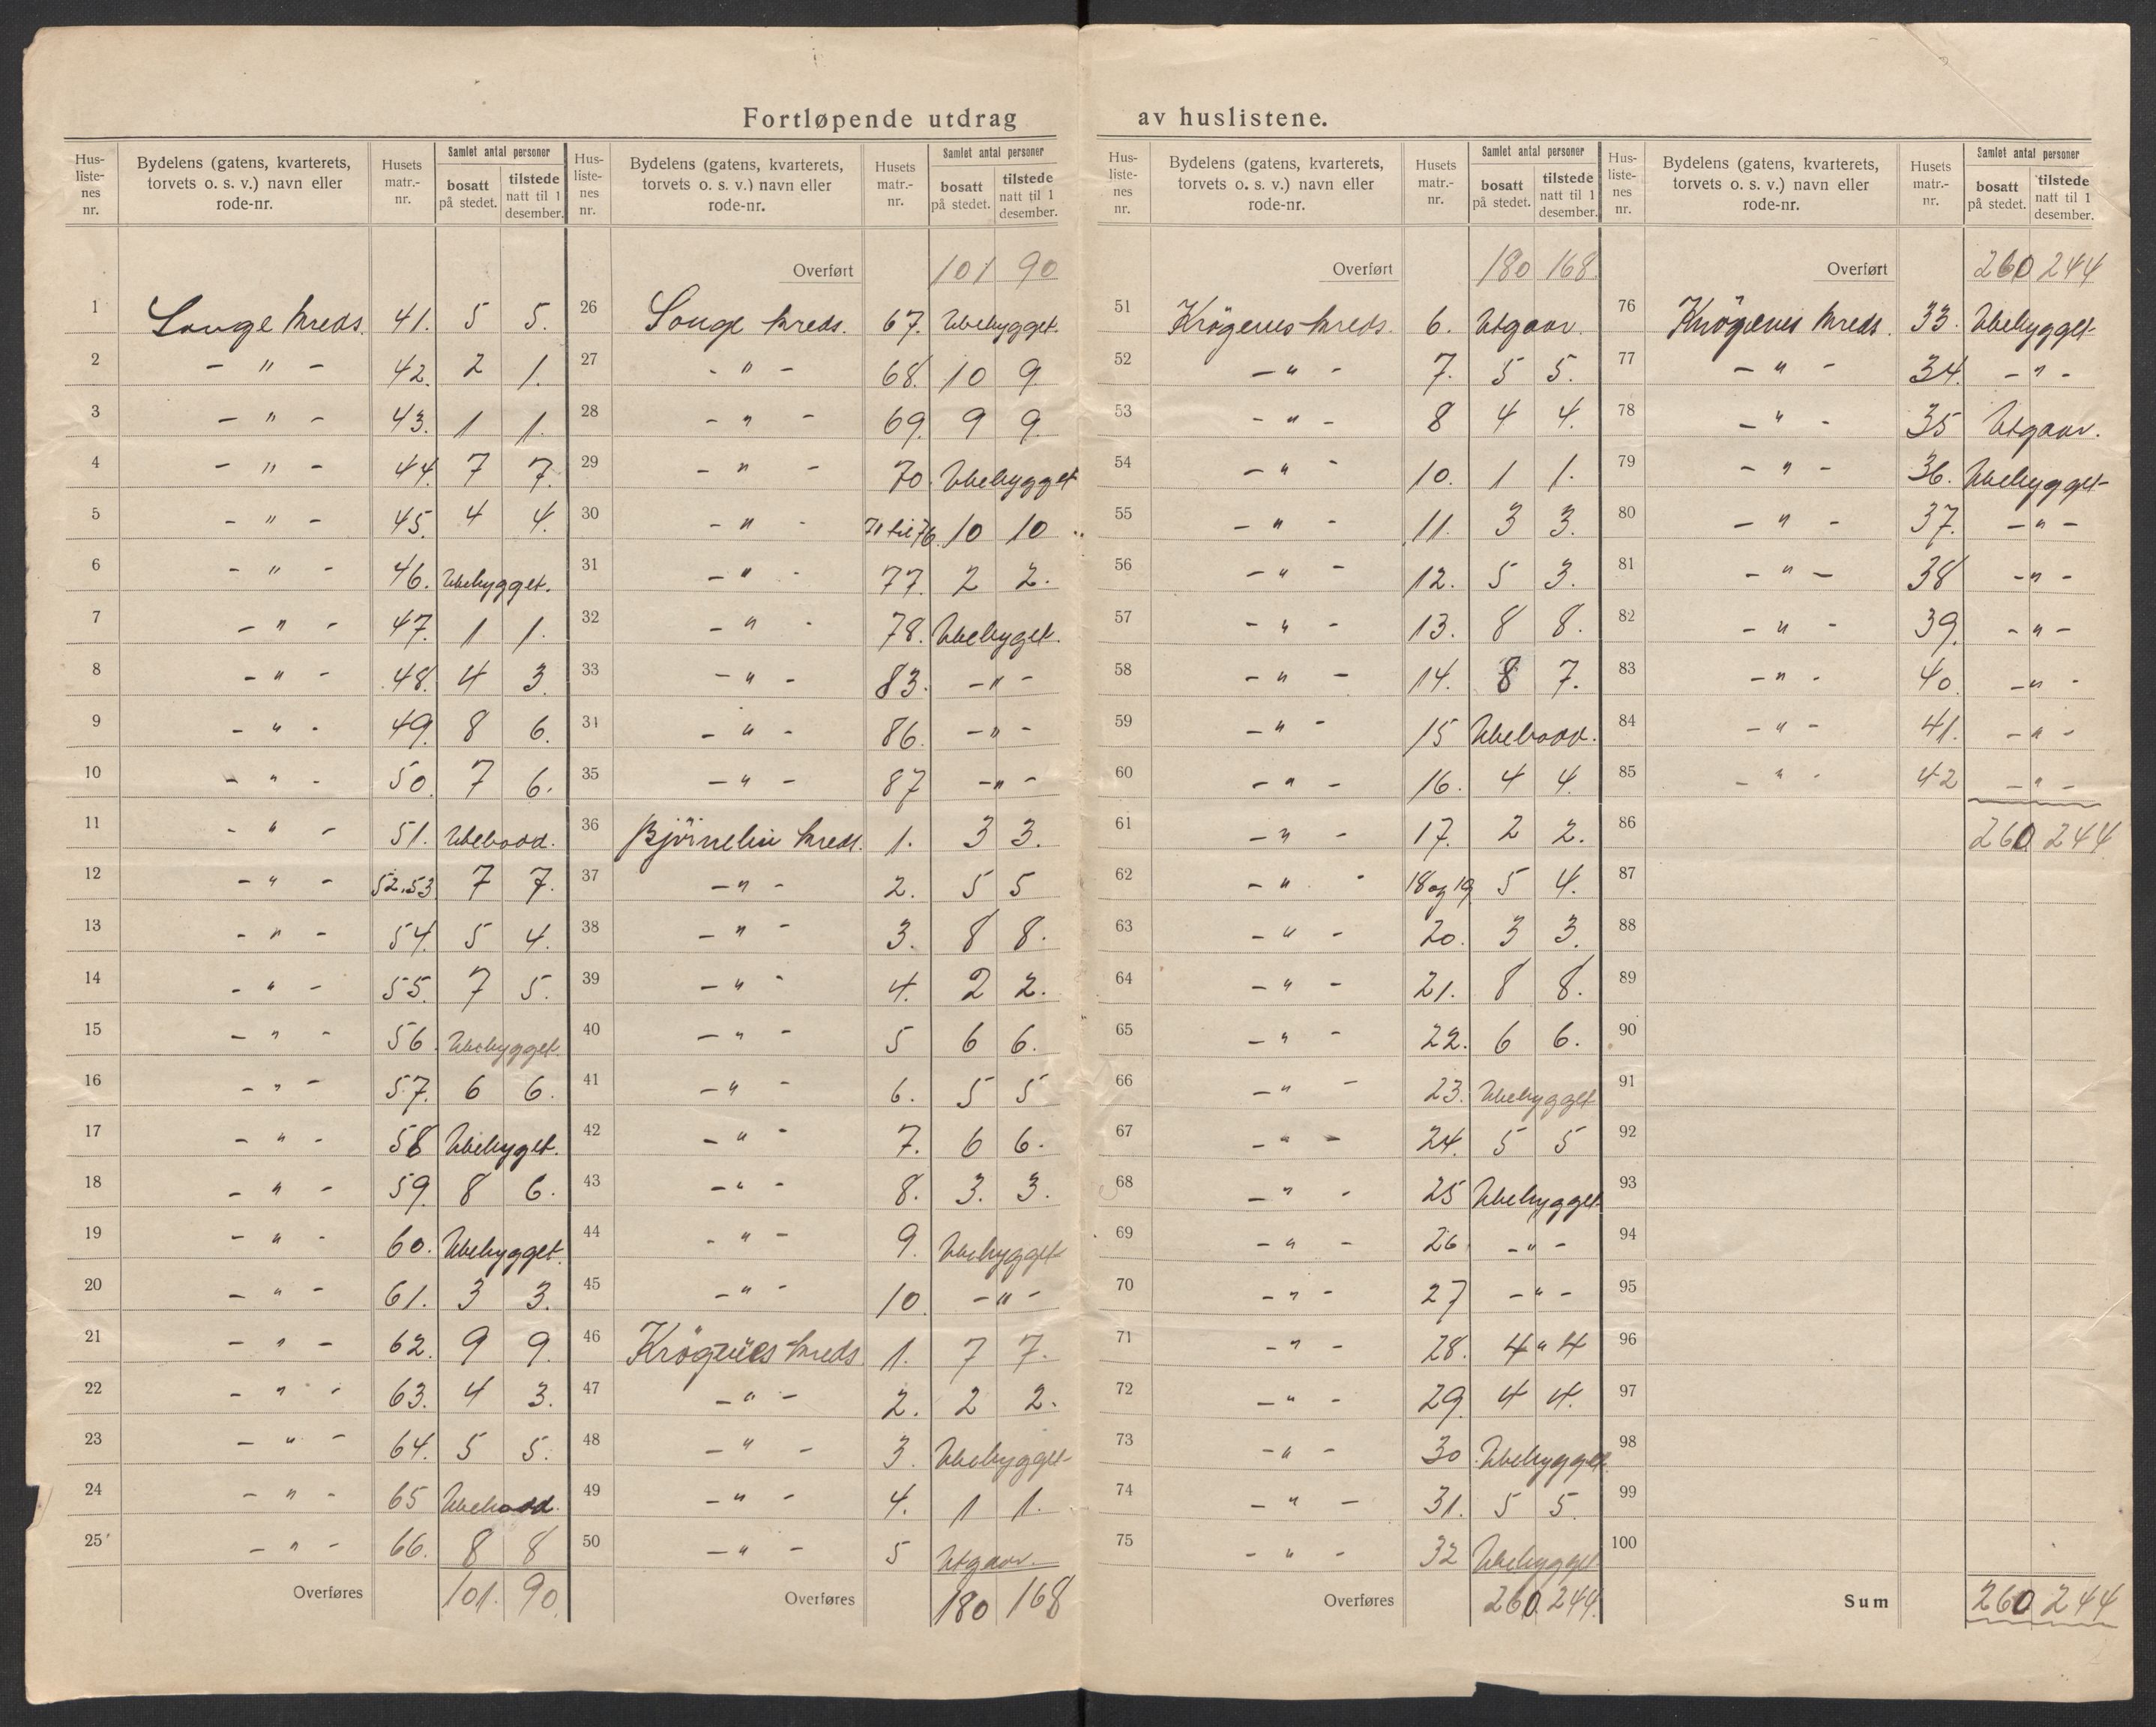 Fortløpende utdrag av huslistene.
Hus-listenes nr. Bydelens (gatens, kvarterets, torvets o. s. v.) navn eller rode-nr. Husets matr.-nr. Samlet antal personer bosatt på stedet. tilstede natt til 1 desember.
1 Songe kreds. 41. 5 5.
2 - " - 42. 2 1.
3 - " - 43. 1 1.
4 - " - 44. 7 7.
5 - " - 45. 4 4.
6 - " - 46. Ubebygget.
7 - " - 47. 1 1.
8 - " - 48. 4 3.
9 - " - 49. 8 6.
10 - " - 50. 7 6.
11 - " - 51. Ubebodd.
12 - " - 52.53 7 7.
13 - " - 54. 5 4.
14 - " - 55. 7 5.
15 - " - 56. Ubebygget
16 - " - 57. 6 6.
17 - " - 58 Ubebyget.
18 - " - 59. 8 6.
19 - " - 60. Ubebygget.
20 - " - 61. 3 3.
21 - " - 62. 9 9.
22 - " - 63. 4 3.
23 - " - 64. 5 5.
24 - " - 65 Ubebodd.
25 - " - 66. 8 8
Overføres 101. 90.
Hus-listenes nr. Bydelens (gatens, kvarterets, torvets o. s. v.) navn eller rode-nr. Husets matr.-nr. Samlet antal personer bosatt på stedet. tilstede natt til 1 desember.
Overført 101 90
26 Songe kreds. 67. Ubebygget.
27 - " - 68. 10 9.
28 - " - 69. 9 9.
29 - " - 70. Ubebygget
30 - " - 71 til 76. 10 10
31 - " - 77. 2 2.
32 - " - 78. Ubebyget.
33 - " - 83. - " -
34 - " - 86. - " -
35 - " - 87 - " -
36 kreds. 1. 3 3.
37 - " - 2. 5 5
38 - " - 3. 8 8.
39 - " - 4. 2 2.
40 - " - 5 6 6.
41 - " - 6. 5 5
42 - " - 7. 6 6.
43 - " - 8. 3. 3.
44 - " - 9. Ubebygget
45 - " - 10. - " -
46 Krögenes kreds 1. 7 7.
47 - " - 2. 2 2.
48 - " - 3. Ubebygget
49 - " - 4. 1 1.
50 - " - 5 Utgaar.
Overføres 180 168
Hus-listenes nr. Bydelens (gatens, kvarterets, torvets o. s. v.) navn eller rode-nr. Husets matr.-nr. Samlet antal personer bosatt på stedet. tilstede natt til 1 desember.
Overført 180 168.
51 Krögenes kreds. 6. Utgaar.
52 - " - 7. 5 5.
53 - " - 8 4 4.
54 - " - 10. 1 1.
55 - " - 11. 3 3.
56 - " - 12. 5 3.
57 - " - 13. 8 8.
58 - " - 14. 8 7.
59 - " - 15 Ubebodd.
60 - " - 16. 4 4.
61 - " - 17. 2 2.
62 - " - 18 og 19 5 4.
63 - " - 20. 3 3.
64 - " - 21. 8 8.
65 - " - 22. 6 6.
66 - " - 23. Ubebygget
67 - " - 24. 5 5
68 - " - 25 Ubebygget
69 - " - 26 - " -
70 - " - 27 - " -
71 - " - 28. 4 " 4
72 - " - 29. 4 4.
73 - " - 30 Ubebygget.
74 - " - 31. 5 5.
75 - " - 32 Ubebygget
Overføres 260. 244.
Hus-listenes nr. Bydelens (gatens, kvarterets, torvets o. s. v.) navn eller rode-nr. Husets matr.-nr. Samlet antal personer bosatt på stedet. tilstede natt til 1 desember.
Overført 260 244
76 Krögenes kreds. 33. Ubebygget
77 - " - 34. - " -
78 - " - 35 Utgaar.
79 - " - 36. Ubebygget
80 - " - 37. - " -
81 - " - 38 - " -
82 - " - 39. - " -
83 - " - 40. - " -
84 - " - 41. - " -
85 - " - 42 - " -
86 260 244
87
88
89
90
91
92
93
94
95
96
97
98
99
100
Sum 260 244